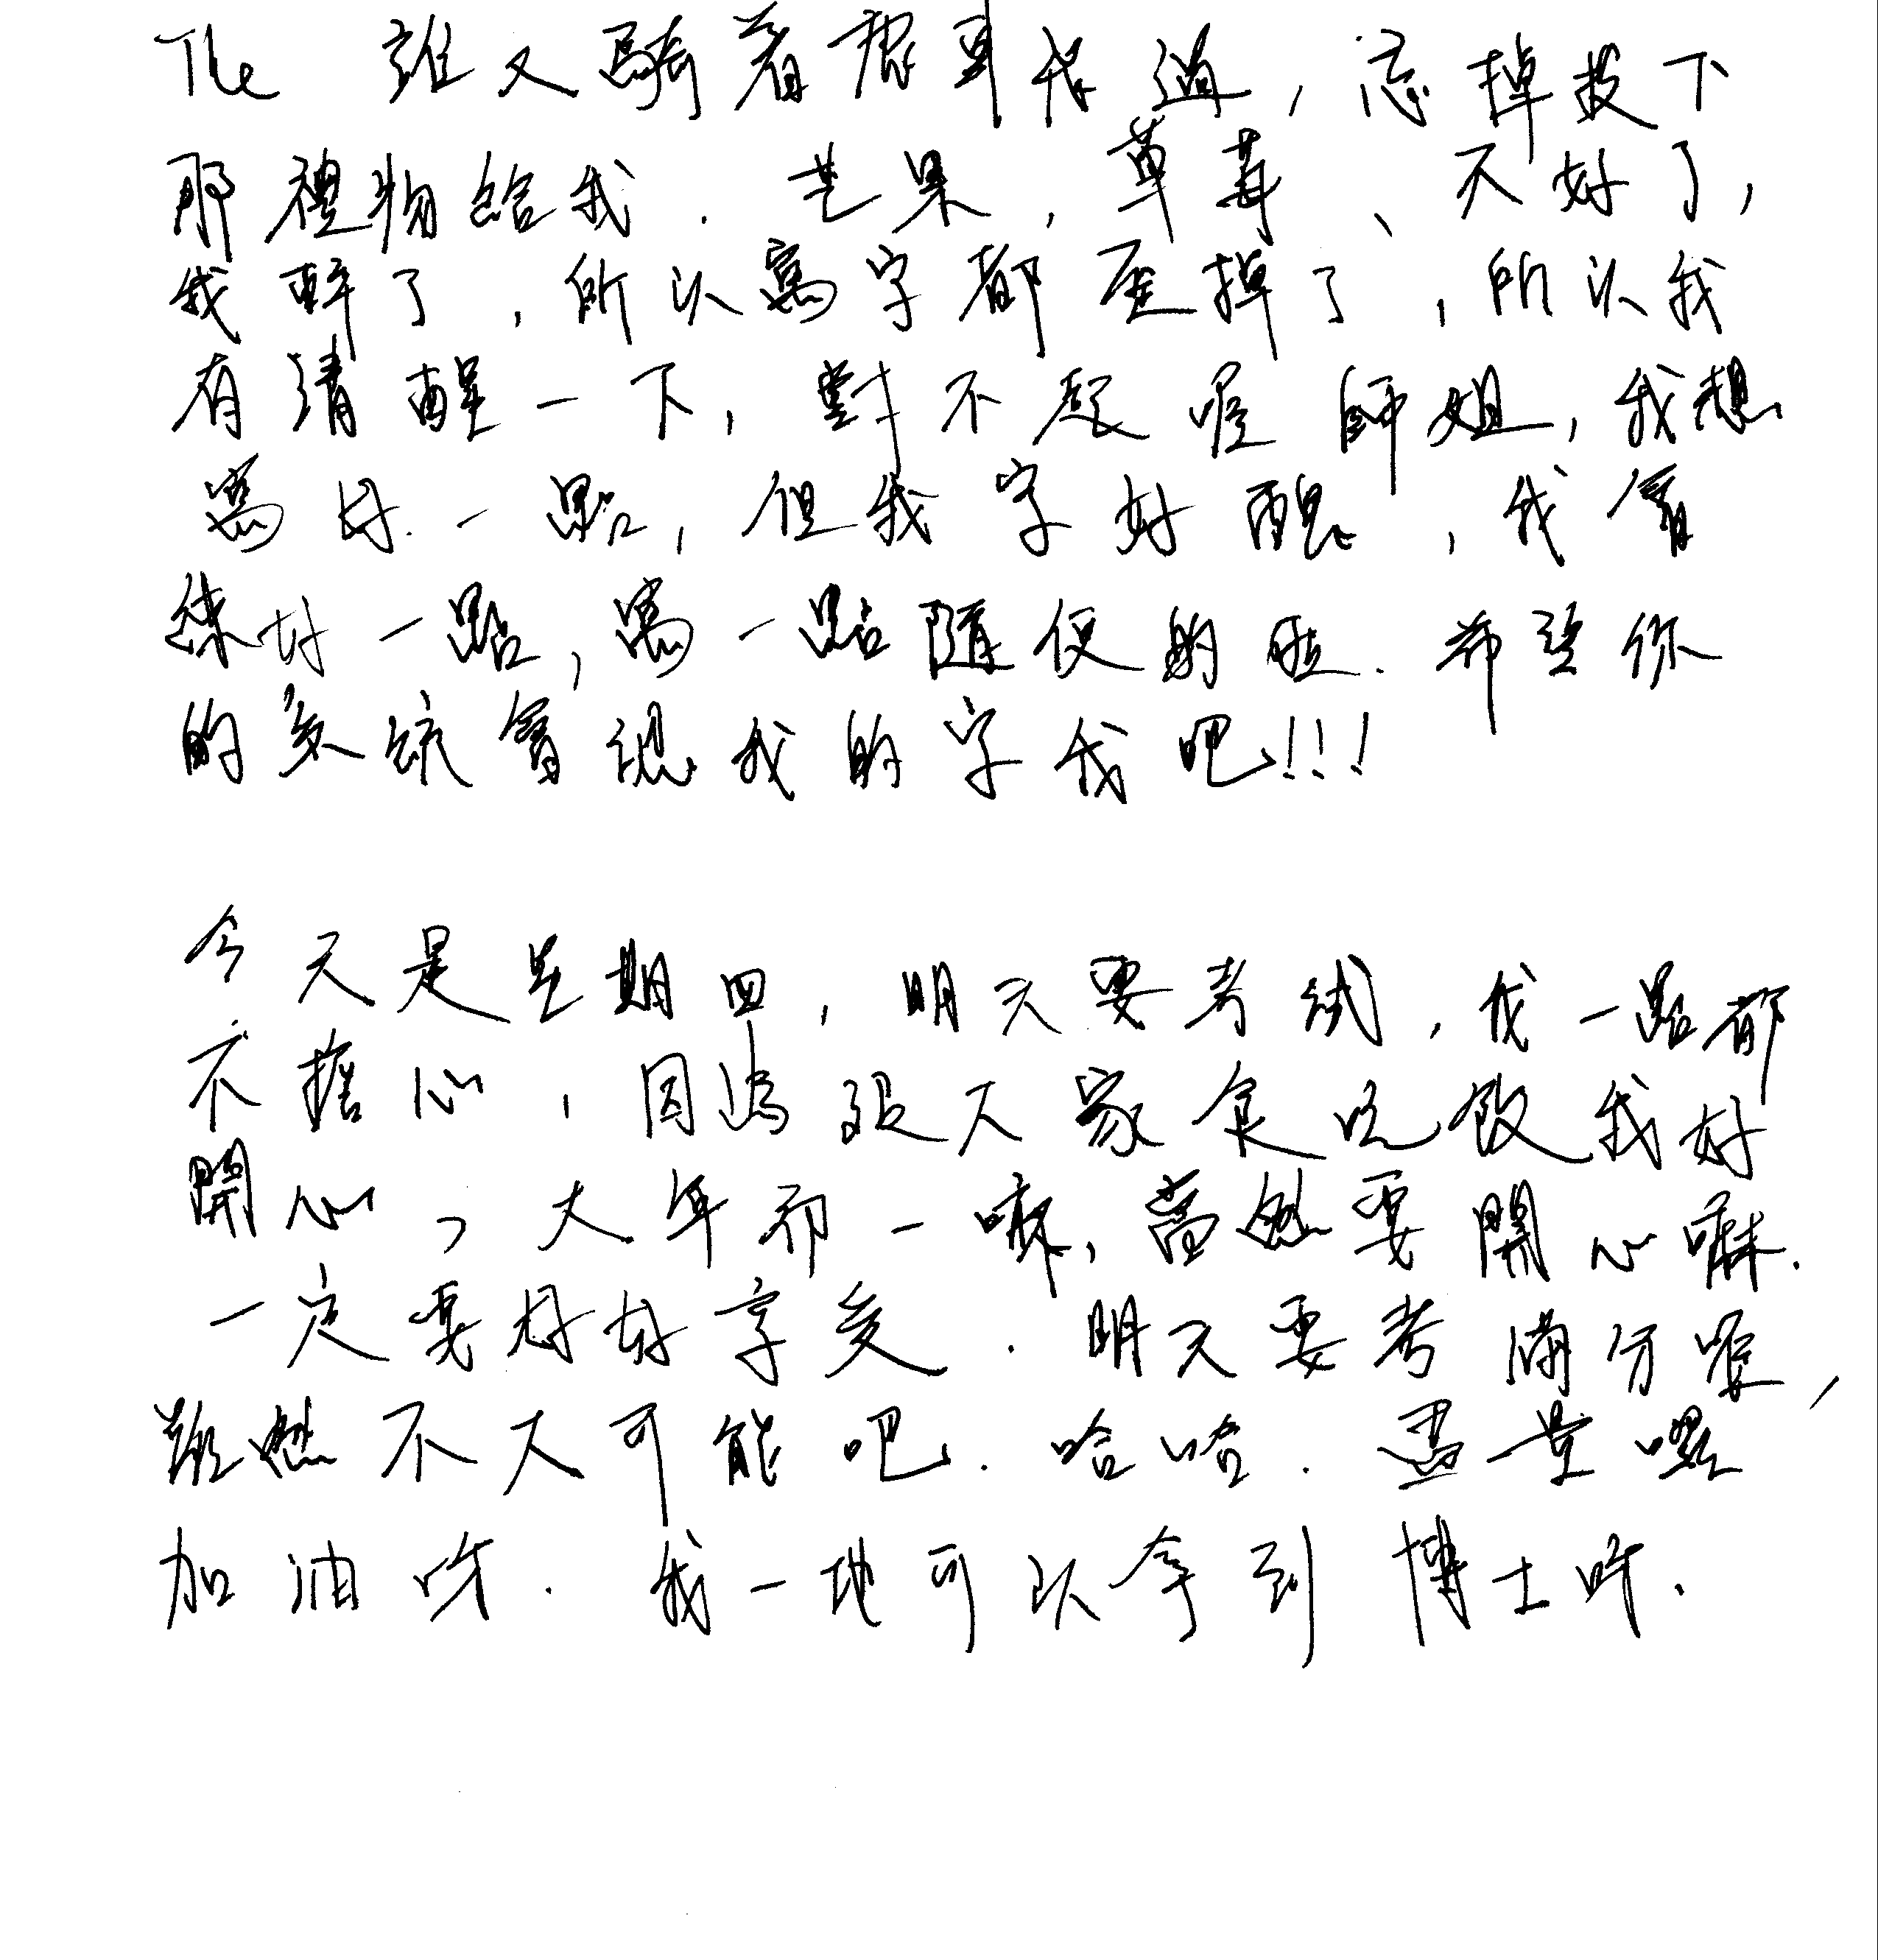 The 誰又騎著鹿車飛過，忘掉投下
那禮物給我．芒果，草莓、不好了，
我醉了，所以寫字都歪掉了，所以我
有清醒一下，對不起喔師姐，我想
寫好一點，但我字好醜，我會
練好一點，寫一點隨便的啦．希望你
的系統會認我的字我吧!!!
今天是星期四，明天要考試，我一點都
不擔心，因為跟大家食吃飯我好
開心，大年初一嘛，當然要開心嘛．
一定要好好享受．明天要考滿分喔，
雖然不大可能吧．哈哈．盡量囉
加油呀．我一地可以拿到博士呀．